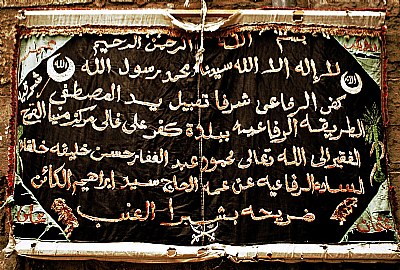 بسم الله الرحمن الرحيم
لا إله إلا الله سيدنا محمد رسول الله
كف الرفاعى شرفا تقبيل يد المصطفى
الطريقه الرفاعيه ببلدة كفر على غالى مركز منيا القمح شرقيه
الفقير إلى الله وتعالى محمود عبد الغفار حسن خليفه خلفاء
الساده الرفاعيه عن عمه الحاج سيد ابراهيم الكائن
ضريحه بشبرا العنب
الله
الله